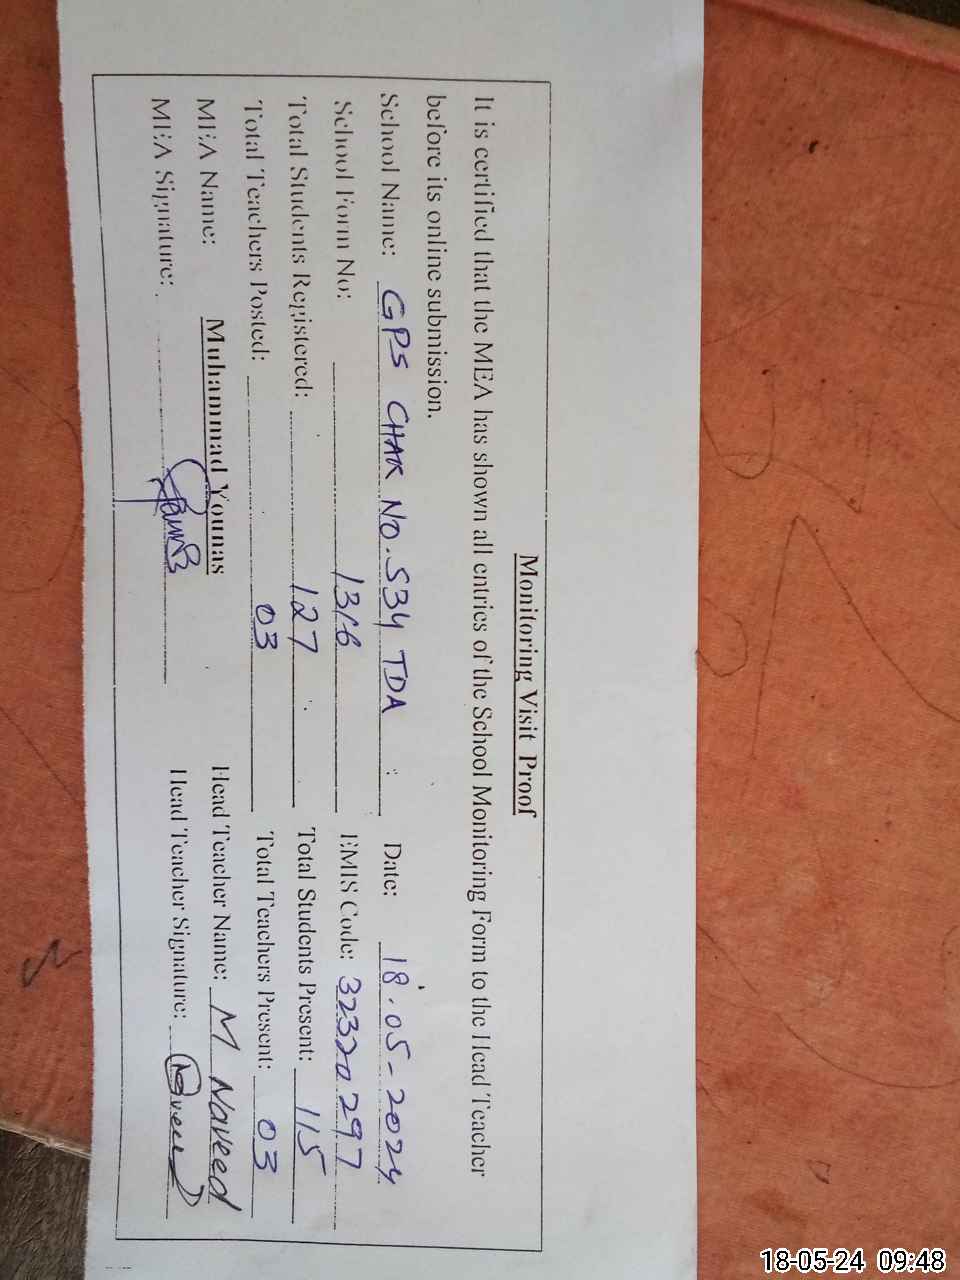 Monitoring Visit Proof
It is certified that the MEA has shown all entries of the School Monitoring Form to the Head Teacher
before its online submission.
School Name: GPS CHAK NO.534 TDA Date: 18.05-2024
School Form No: 1316 EMIS Code: 32320297
Total Students Registered: 127 Total Students Present: 115
Total Teachers Posted: 03 Total Teachers Present: 03
MEA Name: Muhammad Younas Head Teacher Name: M Naveed
MEA Signature: Head Teacher Signature:
18-05-24 09:48